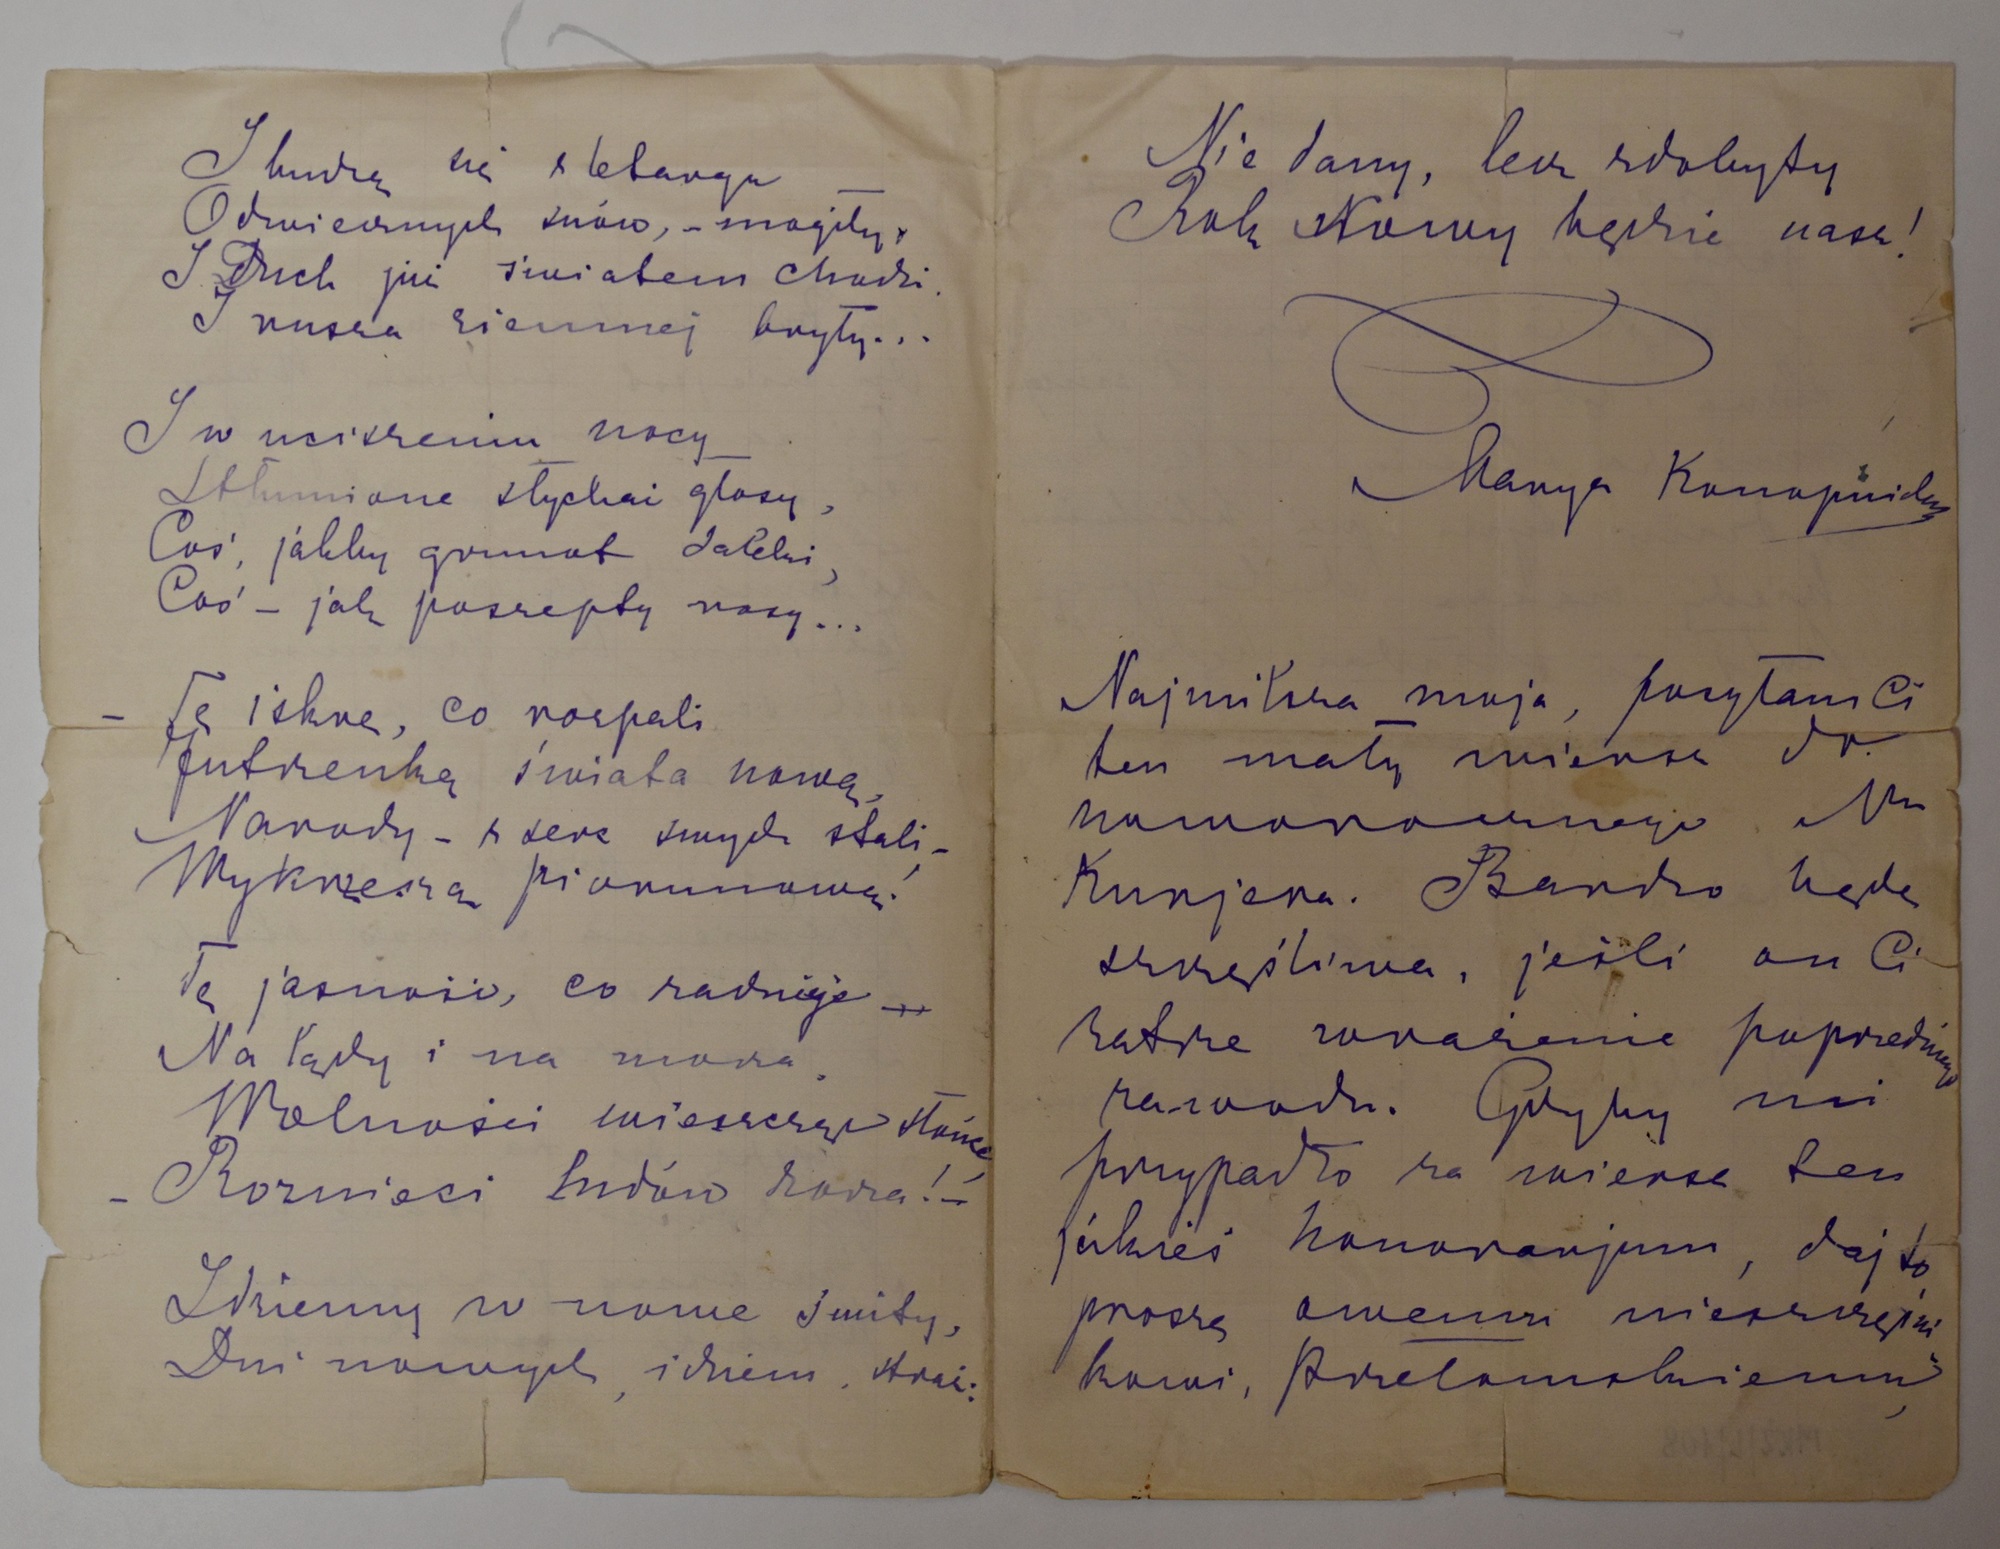 I budzą się z letargu
Odwiecznych snów, – mogiły,
I Duch już światem chodzi.
I rusza ziemnej bryły...
I w uciszeniu nocy
Stłumione słychać głosy,
Coś, jakby grzmot daleki,
Coś – jak poszepty rosy...
– Tę iskrę, co rozpali
Jutrzenką świata nową,
Narody – z serc swych stali –
Wykrzeszą piorunową!
Tę jasność, co zadnieje –
Na lądy i na morza.
Wolności wieszcząc słońce,
– Roznieci ludów zorza! –
Idziemy w nowe świty,
Dni nowych, idziem, straż:
Nie dany, lecz zdobyty
Rok Nowy będzie nasz!
Marya Konopnicka
Najmilsza moja, posyłam Ci
ten mały wiersz do
noworocznego Nru
Kurjera. Bardzo będę
szczęśliwa, jeśli on Ci
zatrze wrażenie poprzedniego
zawodu. Gdyby mi
przypadło za wiersz ten
jakieś honorarjum, daj to
proszę owemu nieszczęśni
kowi, Przełomskiemu,